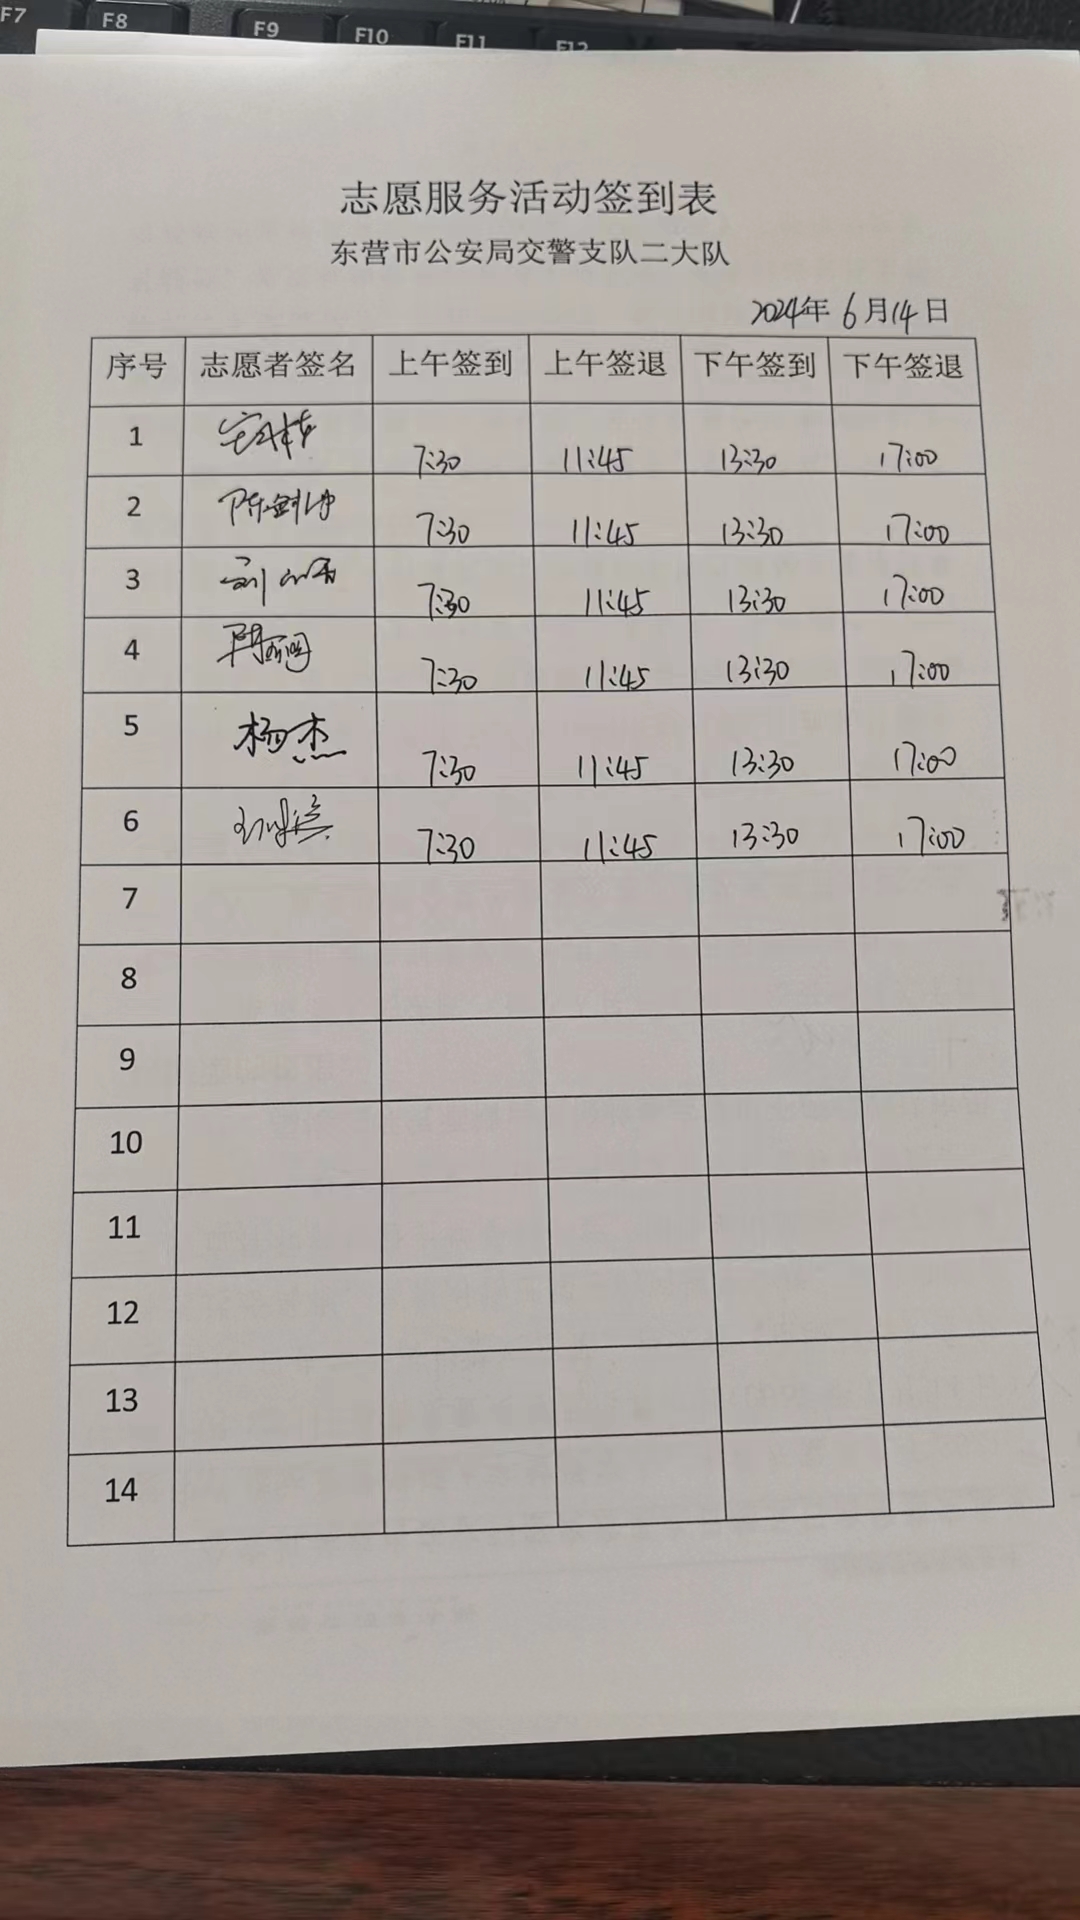 F7 F8 F9 F10 F11 F12
志愿服务活动签到表
东营市公安局交警支队二大队
2024年 6月14日
序号 志愿者签名 上午签到 上午签退 下午签到 下午签退
1 7:30 11:45 13:30 17:00
2 7:30 11:45 13:30 17:00
3 7:30 11:45 13:30 17:00
4 7:30 11:45 13:30 17:00
5 杨杰 7:30 11:45 13:30 17:00
6 7:30 11:45 13:30 17:00
7
8
9
10
11
12
13
14